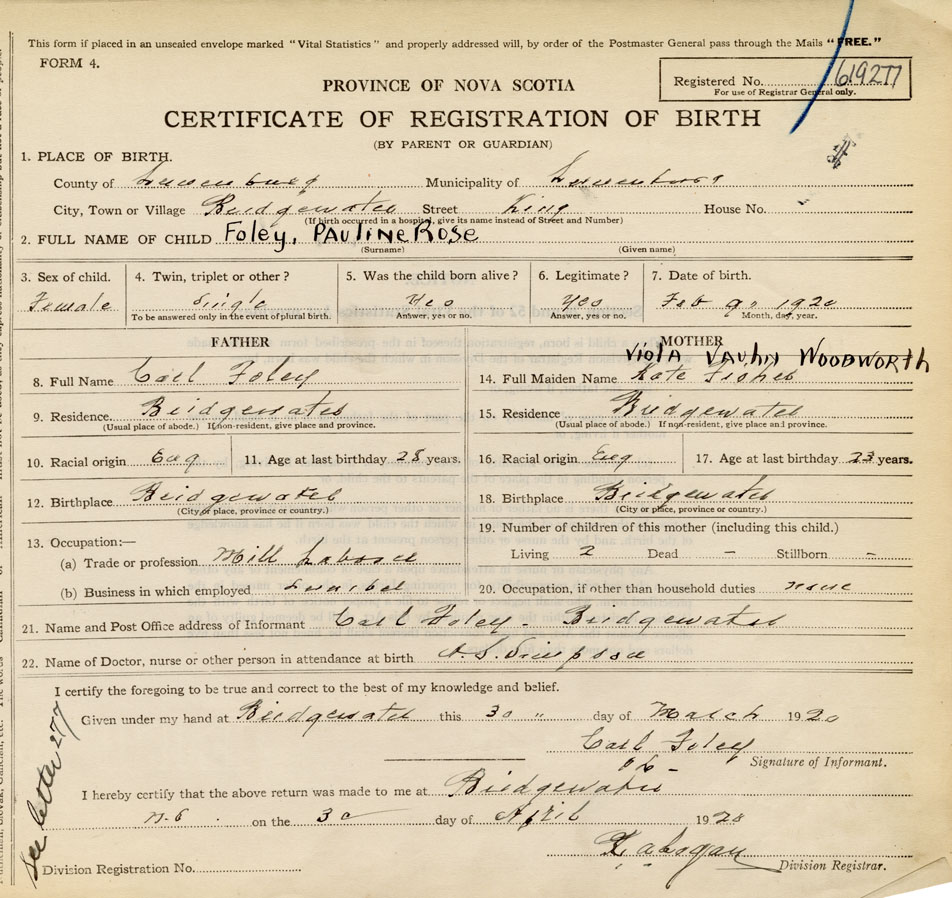 This form if placed in an unsealed envelope marked "Vital Statistics" and properly addressed will, by order of the Postmaster General pass through the Mails "FREE."
FORM 4.
PROVINCE OF NOVA SCOTIA
Registered No. 619277
For use of Registrar General only.
CERTIFICATE OF REGISTRATION OF BIRTH
(BY PARENT OR GUARDIAN)
1. PLACE OF BIRTH.
County of Lunenburg Municipality of Lunenburg
City, Town or Village Bridgewater Street King House No.
(If birth occurred in a hospital, give its name instead of Street and Number)
2. FULL NAME OF CHILD Foley, PAULINE ROSE
(Surname) (Given name)
3. Sex of child. 4. Twin, triplet or other? 5. Was the child born alive? 6. Legitimate? 7. Date of birth.
Female Single Yes Yes Feb 9" 1920
To be answered only in the event of plural birth. Answer, yes or no. Answer, yes or no. Month, day, year.
FATHER MOTHER
VIOLA VAUHN WOODWORTH
8. Full Name Carl Foley 14. Full Maiden Name Kate Fisher
9. Residence. Bridgewater 15. Residence Bridgewater
(Usual place of abode.) If non-resident, give place and province. (Usual place of abode.) If non-resident, give place and province.
10. Racial origin Eng 11. Age at last birthday 28 years. 16. Racial origin Eng 17. Age at last birthday 23 years.
12. Birthplace Bridgewater 18. Birthplace Bridgewater
(City or place, province or country.) (City or place, province or country.)
19. Number of children of this mother (including this child.)
13. Occupation:—
(a) Trade or profession Mill Laborer Living 2 Dead - Stillborn -
(b) Business in which employed Lumber 20. Occupation, if other than household duties none
21. Name and Post Office address of Informant Carl Foley - Bridgewater
22. Name of Doctor, nurse or other person in attendance at birth A. S. Simpson
I certify the foregoing to be true and correct to the best of my knowledge and belief.
Given under my hand at Bridgewater this 30 " day of March 1920
Carl Foley
Signature of Informant.
I hereby certify that the above return was made to me at Bridgewater
N.S. on the 30 day of April 1928
Division Registrar.
Division Registration No.
see letter 277